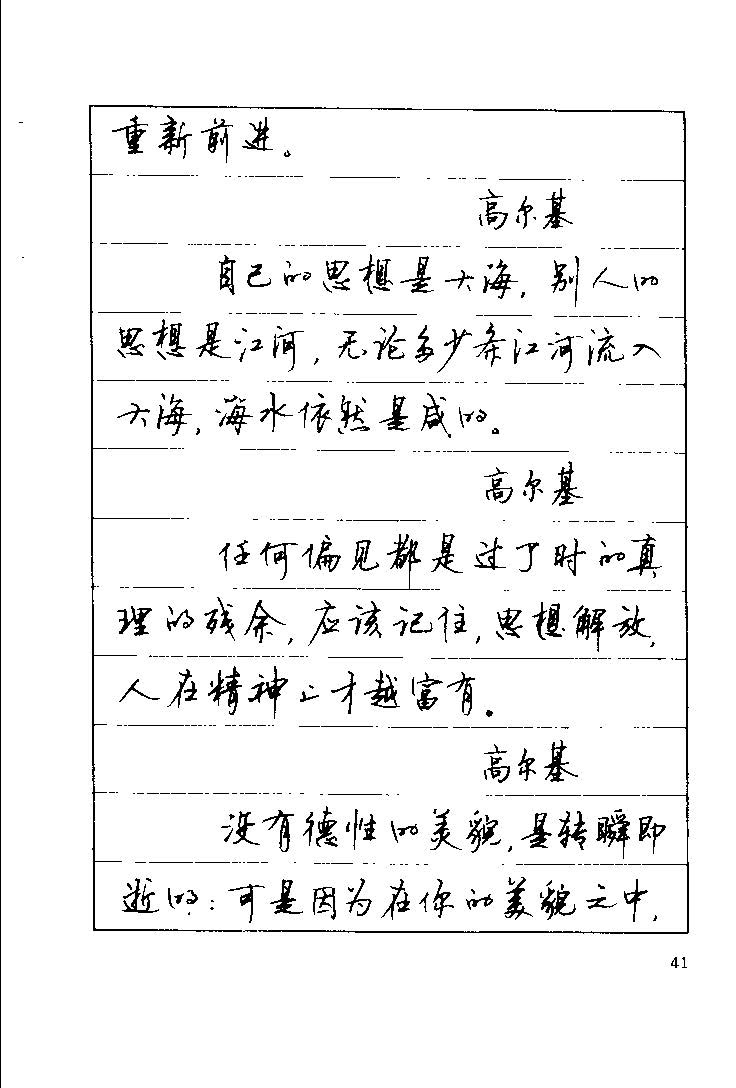 重新前进。
高尔基
自己的思想是大海,别人的
思想是江河,无论多少条江河流入
大海,海水依然是咸的。
高尔基
任何偏见都是过了时的真
理的残余,应该记住,思想解放,
人在精神上才越富有。
高尔基
没有德性的美貌,是转瞬即
逝的:可是因为在你的美貌之中,
41